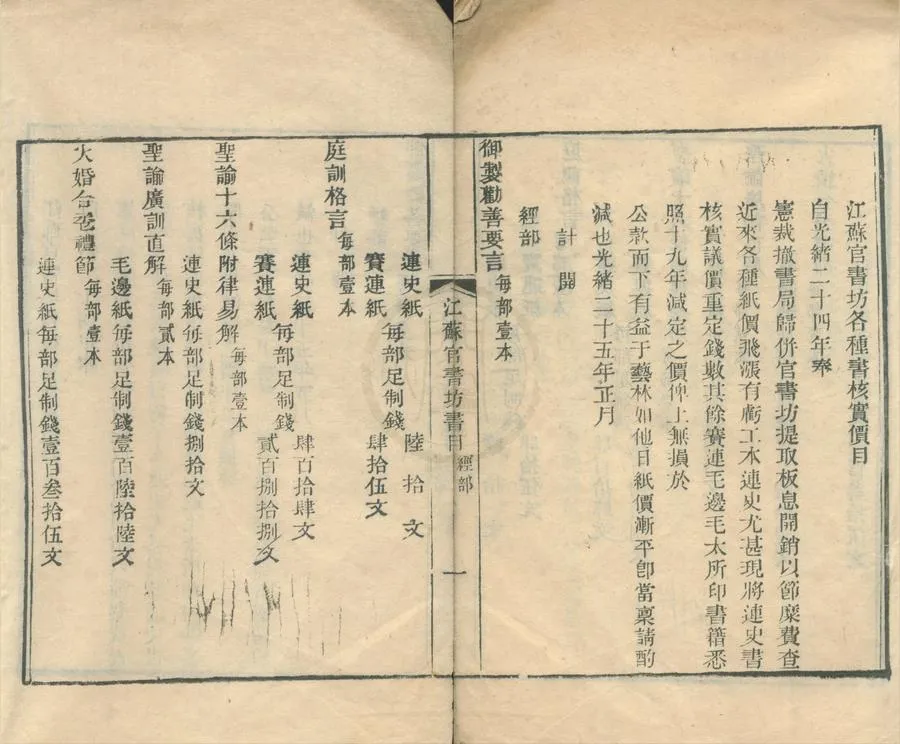 江蘇官書坊各種書核實價目
自光緒二十四年奉
憲裁撤書局歸併官書坊提取板息開銷以節糜費查
近來各種紙價飛漲有虧工本連史尤甚現將連史書
核實議價重定錢數其餘賽連毛邊毛太所印書籍悉
照十九年減定之價俾上無損於
公款而下有益于藝林如他日紙價漸平卽當稟請酌
減也光緒二十五年正月
計開
經部
御製勸善要言 每部壹本
江蘇官書坊書目 經部 一
連史紙 每部足制錢 陸拾文
賽連紙 每部足制錢 肆拾伍文
庭訓格言 每部壹本
連史紙 每部足制錢 肆百拾肆文
賽連紙 每部足制錢 貳百捌拾捌文
聖諭十六條附律易解 每部壹本
連史紙每部足制錢捌拾文
聖諭廣訓直解 每部貳本
毛邊紙每部足制錢壹百陸拾陸文
大婚合卺禮節 每部壹本
連史紙每部足制錢壹百叁拾伍文